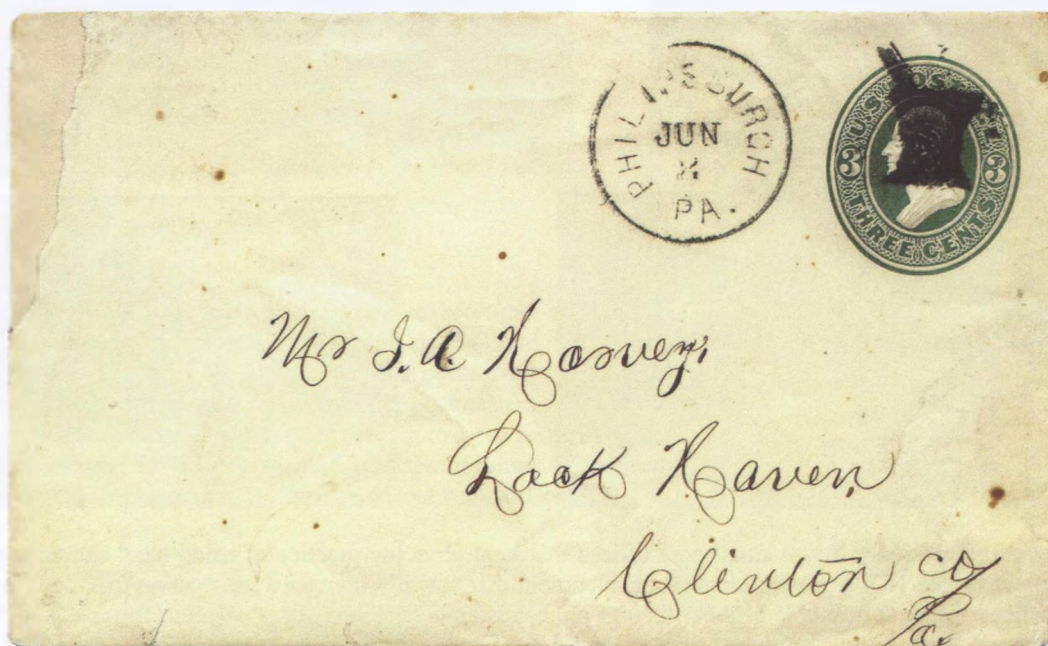 PHILIPSBURGH
JUN
PA.
U.S. POSTAGE
3 3
THREE CENTS
Mr J. A. Harvey,
Lock Haven,
Clinton co
Pa.